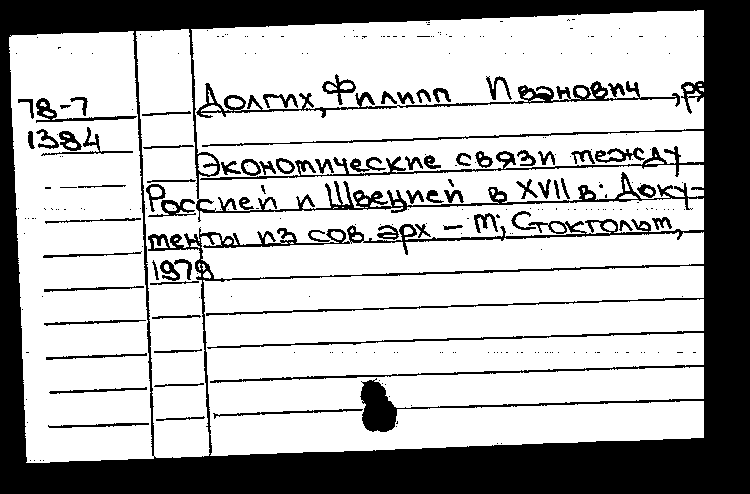 78-7
1384
Долгих, Филипп Иванович, ре
Экономические связи между
Россией и Швецией в XVII в: Доку-
менты из сов. арх – М; Стокгольм,
1978